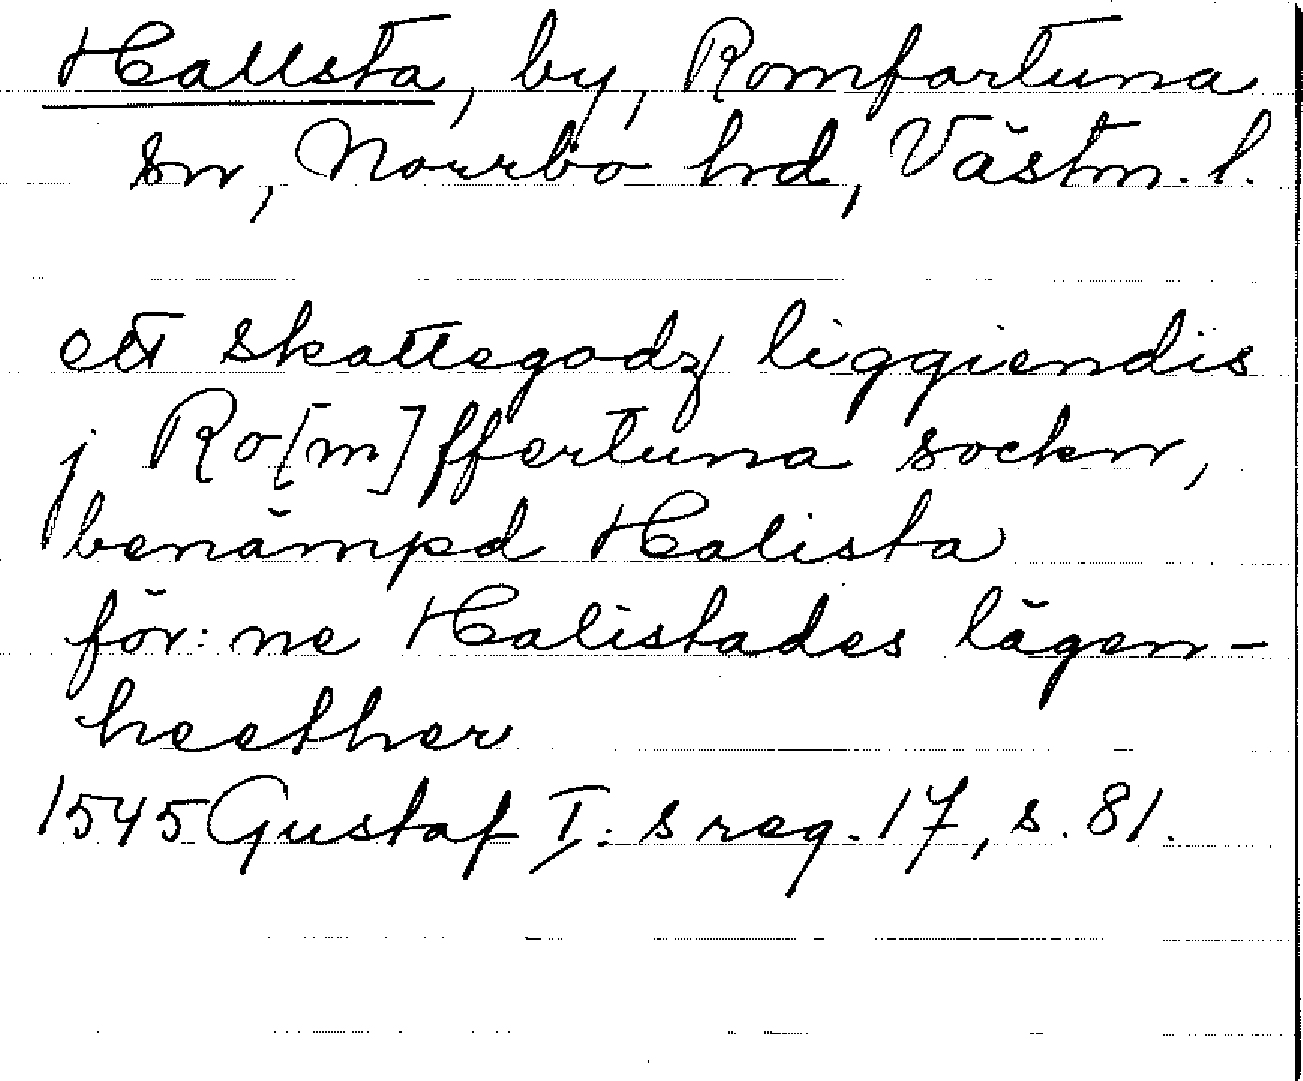 Hallsta, by, Romfartuna
sn, Norrbo hd, Västm. l.
ett skattegodz liggiendis
j Ro[m]ffertuna sockn,
benämpd Halista
för:ne Halistades lägen-
heether
1545 Gustaf I:s reg. 17, s. 81.